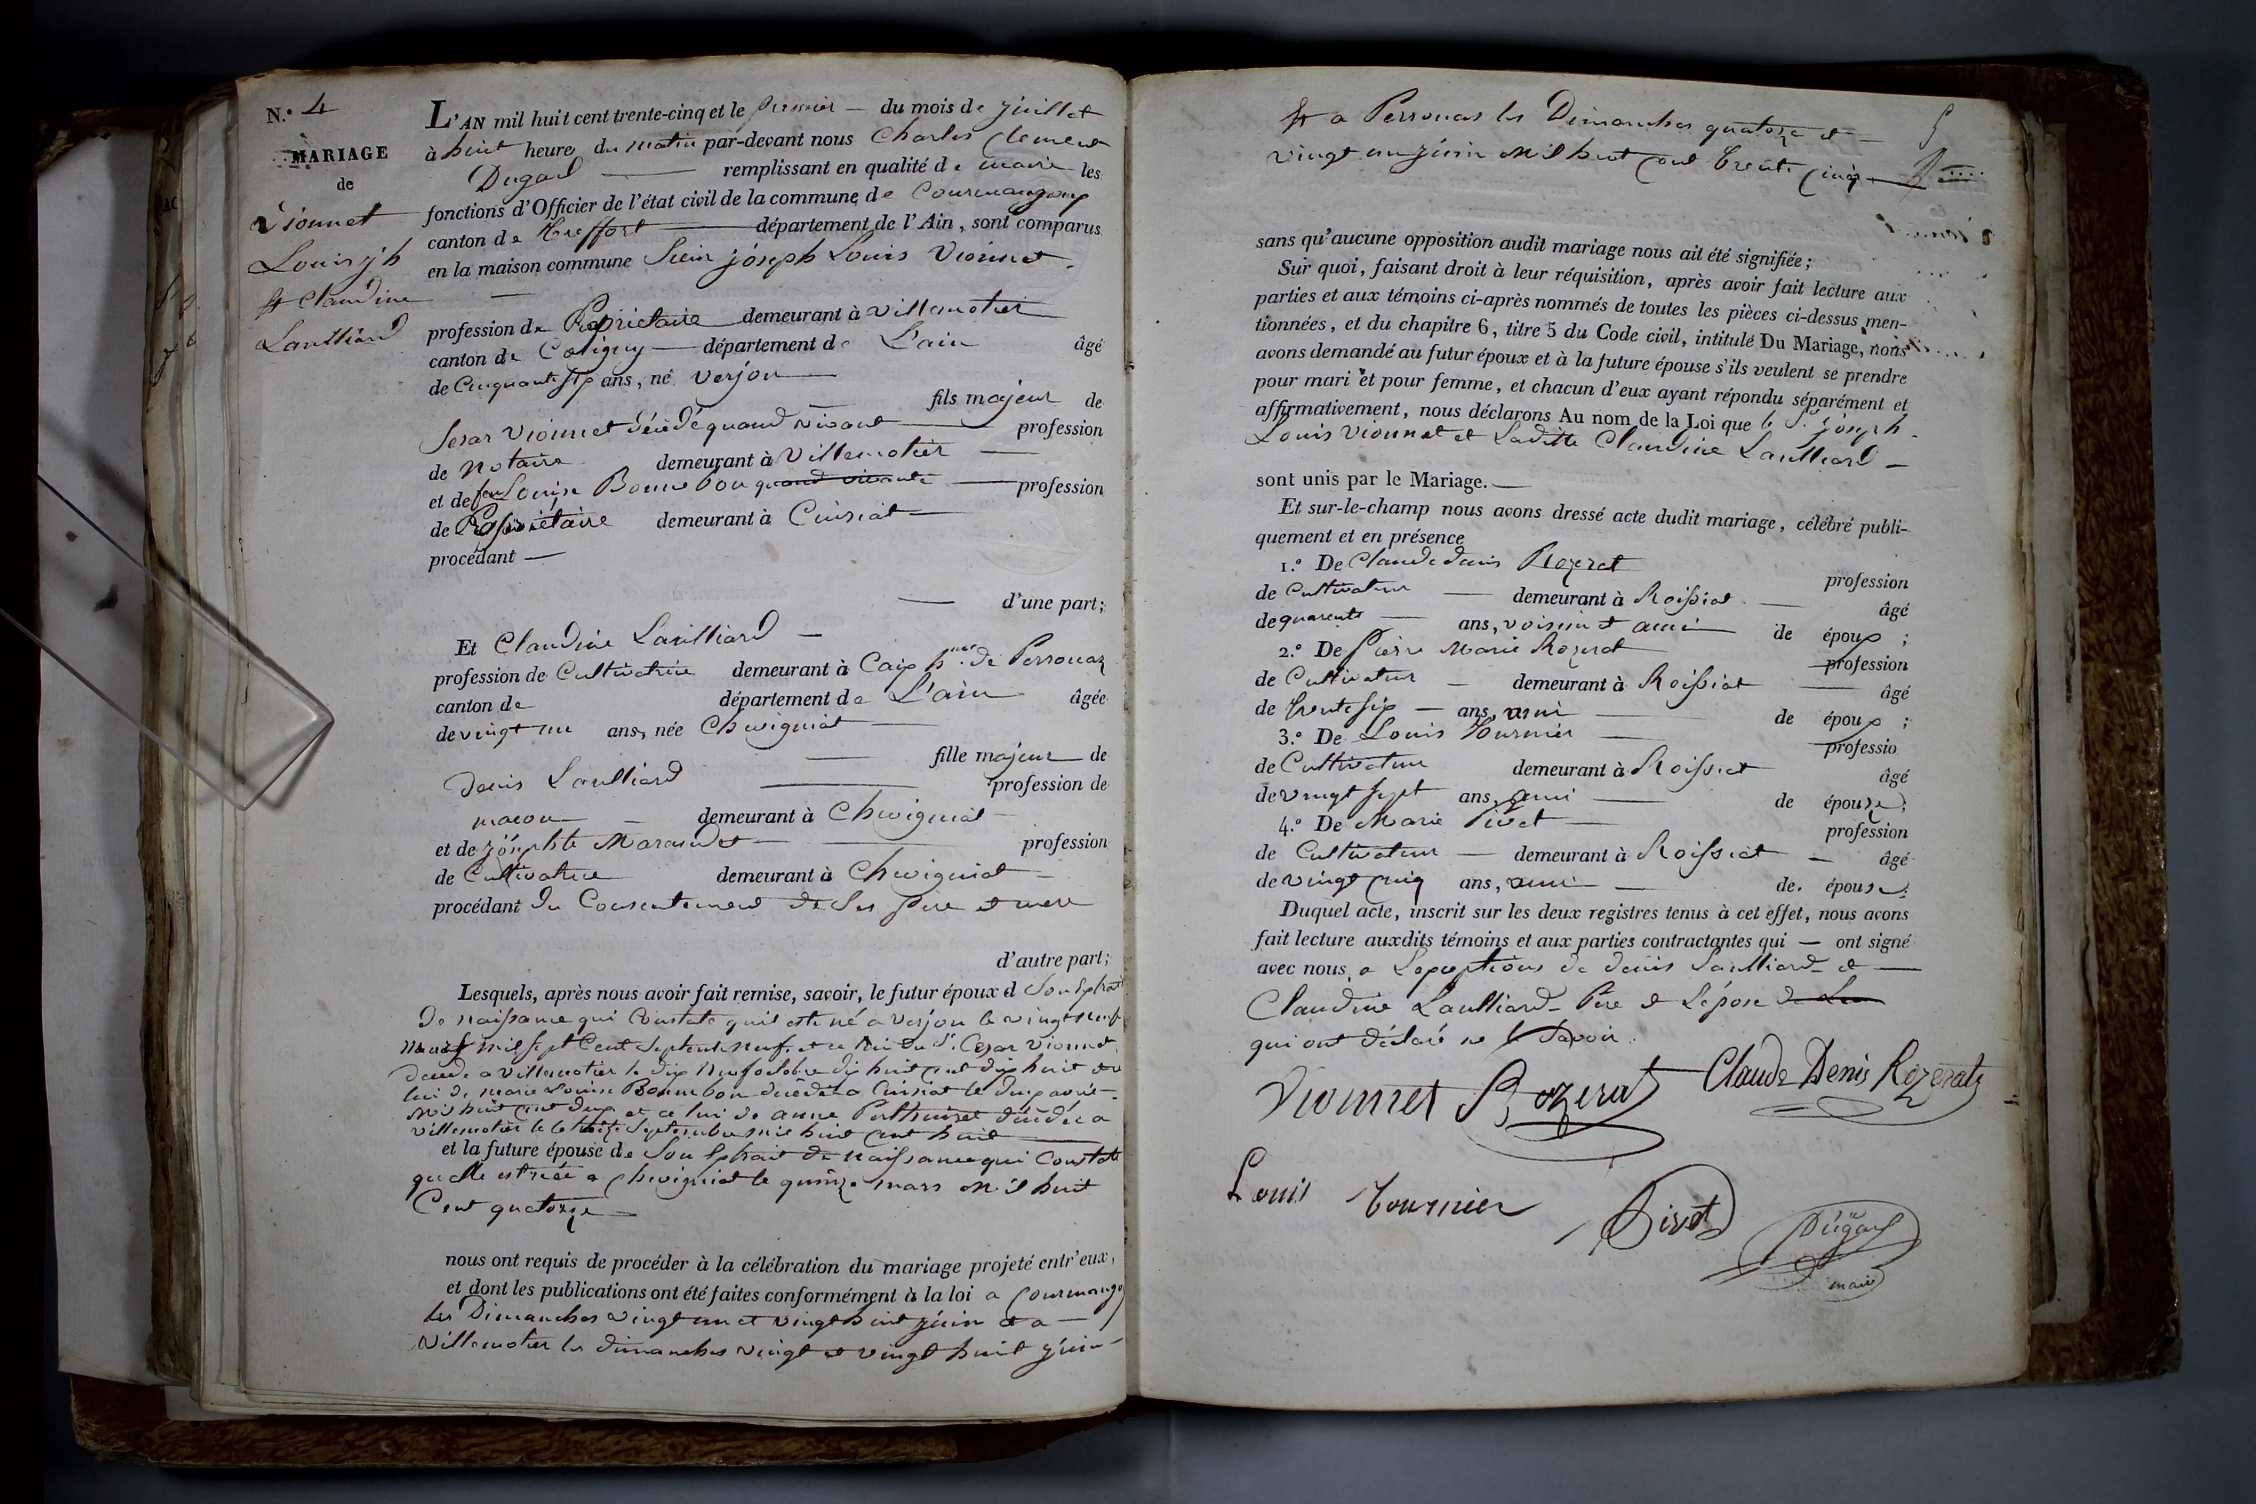 N.° 4
MARIAGE
de
Vionnet
Louis jh
et Claudine
Laulliard
L'AN mil huit cent trente-cinq et le premier — du mois de juillet
à huit heure du matin par-devant nous Charles Clement
Dugad — remplissant en qualité de maire les
fonctions d'Officier de l'état civil de la commune de Courmangoux
canton de Treffort — département de l'Ain, sont comparus
en la maison commune Sieur joseph Louis Vionnet
profession de Propriétaire demeurant à Villemotier
canton de Coligny — département de L'ain âgé
de Cinquante six ans, né Verjon —
fils majeur de
Sesar Vionnet décédé quand vivant — profession
de Notaire demeurant à Villemotier —
et de feu Louise Bonne bon quand vivante — profession
de Propriétaire demeurant à Cuisiat —
procédant —
— d'une part;
Et Claudine Laulliard —
profession de Cultivatrice demeurant à Caix h.au de Perrouaz
canton de département de L'ain âgée
de vingt un ans, née Chevigniat —
— fille majeur de
denis Laulliard — profession de
macon — demeurant à Chevigniat —
et de jósephte Marandet — profession
de Cultivatrice demeurant à Chevigniat —
procédant du Consentement de Ses père et mere
d'autre part;
Lesquels, après nous avoir fait remise, savoir, le futur époux d Son Extrait
de naissance qui Constate quil est né a Verjon le vingt neuf
mars mil sept Cent Septente neuf, et ce lui du S.r Cesar Vionnet
décédé a Villemotier le dix neuf octobre dix huit cent dix huit et ce
lui de marie Louise Bonne bon décédée a Cuisiat le deux avril
mil huit cent deux et ce lui de anne Perthuizet décédée a
Villemotier le Septembre mil huit cent huit —
et la future épouse de Son Extrait de naissance qui Constate
quelle est née a Chevigniat le quinze mars mil huit
Cent quatorze —
nous ont requis de procéder à la célébration du mariage projeté entr'eux,
et dont les publications ont été faites conformément à la loi a Courmangoux
les Dimanches vingt un et vingt huit juin et a —
Villemotier les dimanches vingt et vingt huit juin
5
et a Perrouas les Dimanches quatorze et —
vingt un juin mil huit cent trente cinq —
sans qu'aucune opposition audit mariage nous ait été signifiée;
Sur quoi, faisant droit à leur réquisition, après avoir fait lecture aux
parties et aux témoins ci-après nommés de toutes les pièces ci-dessus men-
tionnées, et du chapitre 6, titre 5 du Code civil, intitulé Du Mariage, nous
avons demandé au futur époux et à la future épouse s'ils veulent se prendre
pour mari et pour femme, et chacun d'eux ayant répondu séparément et
affirmativement, nous déclarons Au nom de la Loi que le S.r joseph
Louis Vionnet et Ladite Claudine Laulliard —
sont unis par le Mariage. —
Et sur-le-champ nous avons dressé acte dudit mariage, célébré publi-
quement et en présence
1.° De Claude denis Rozerat profession
de Cultivateur — demeurant à Roissiat — âgé
de quarente — ans, voisin et ami — de époux ;
2.° De Pierre Marie Rozerat profession
de Cultivateur — demeurant à Roissiat — âgé
de trente six — ans, ami — de époux ;
3.° De Louis Tournier — professio
de Cultivateur demeurant à Roissiat âgé
de vingt sept ans, ami — de épouse ;
4.° De Marie Pivet — profession
de Cultivateur — demeurant à Roissiat — âgé
de vingt cinq ans, ami — de. épouse ;
Duquel acte, inscrit sur les deux registres tenus à cet effet, nous avons
fait lecture auxdits témoins et aux parties contractantes qui — ont signé
avec nous, a Lexceptions de denis Laulliard et —
Claudine Laulliard Père et Lépose
qui ont déclaré ne le Savoir.
Vionnet Rozerat Claude Denis Rozerat
Louis Tournier Pivet Dugad
maire